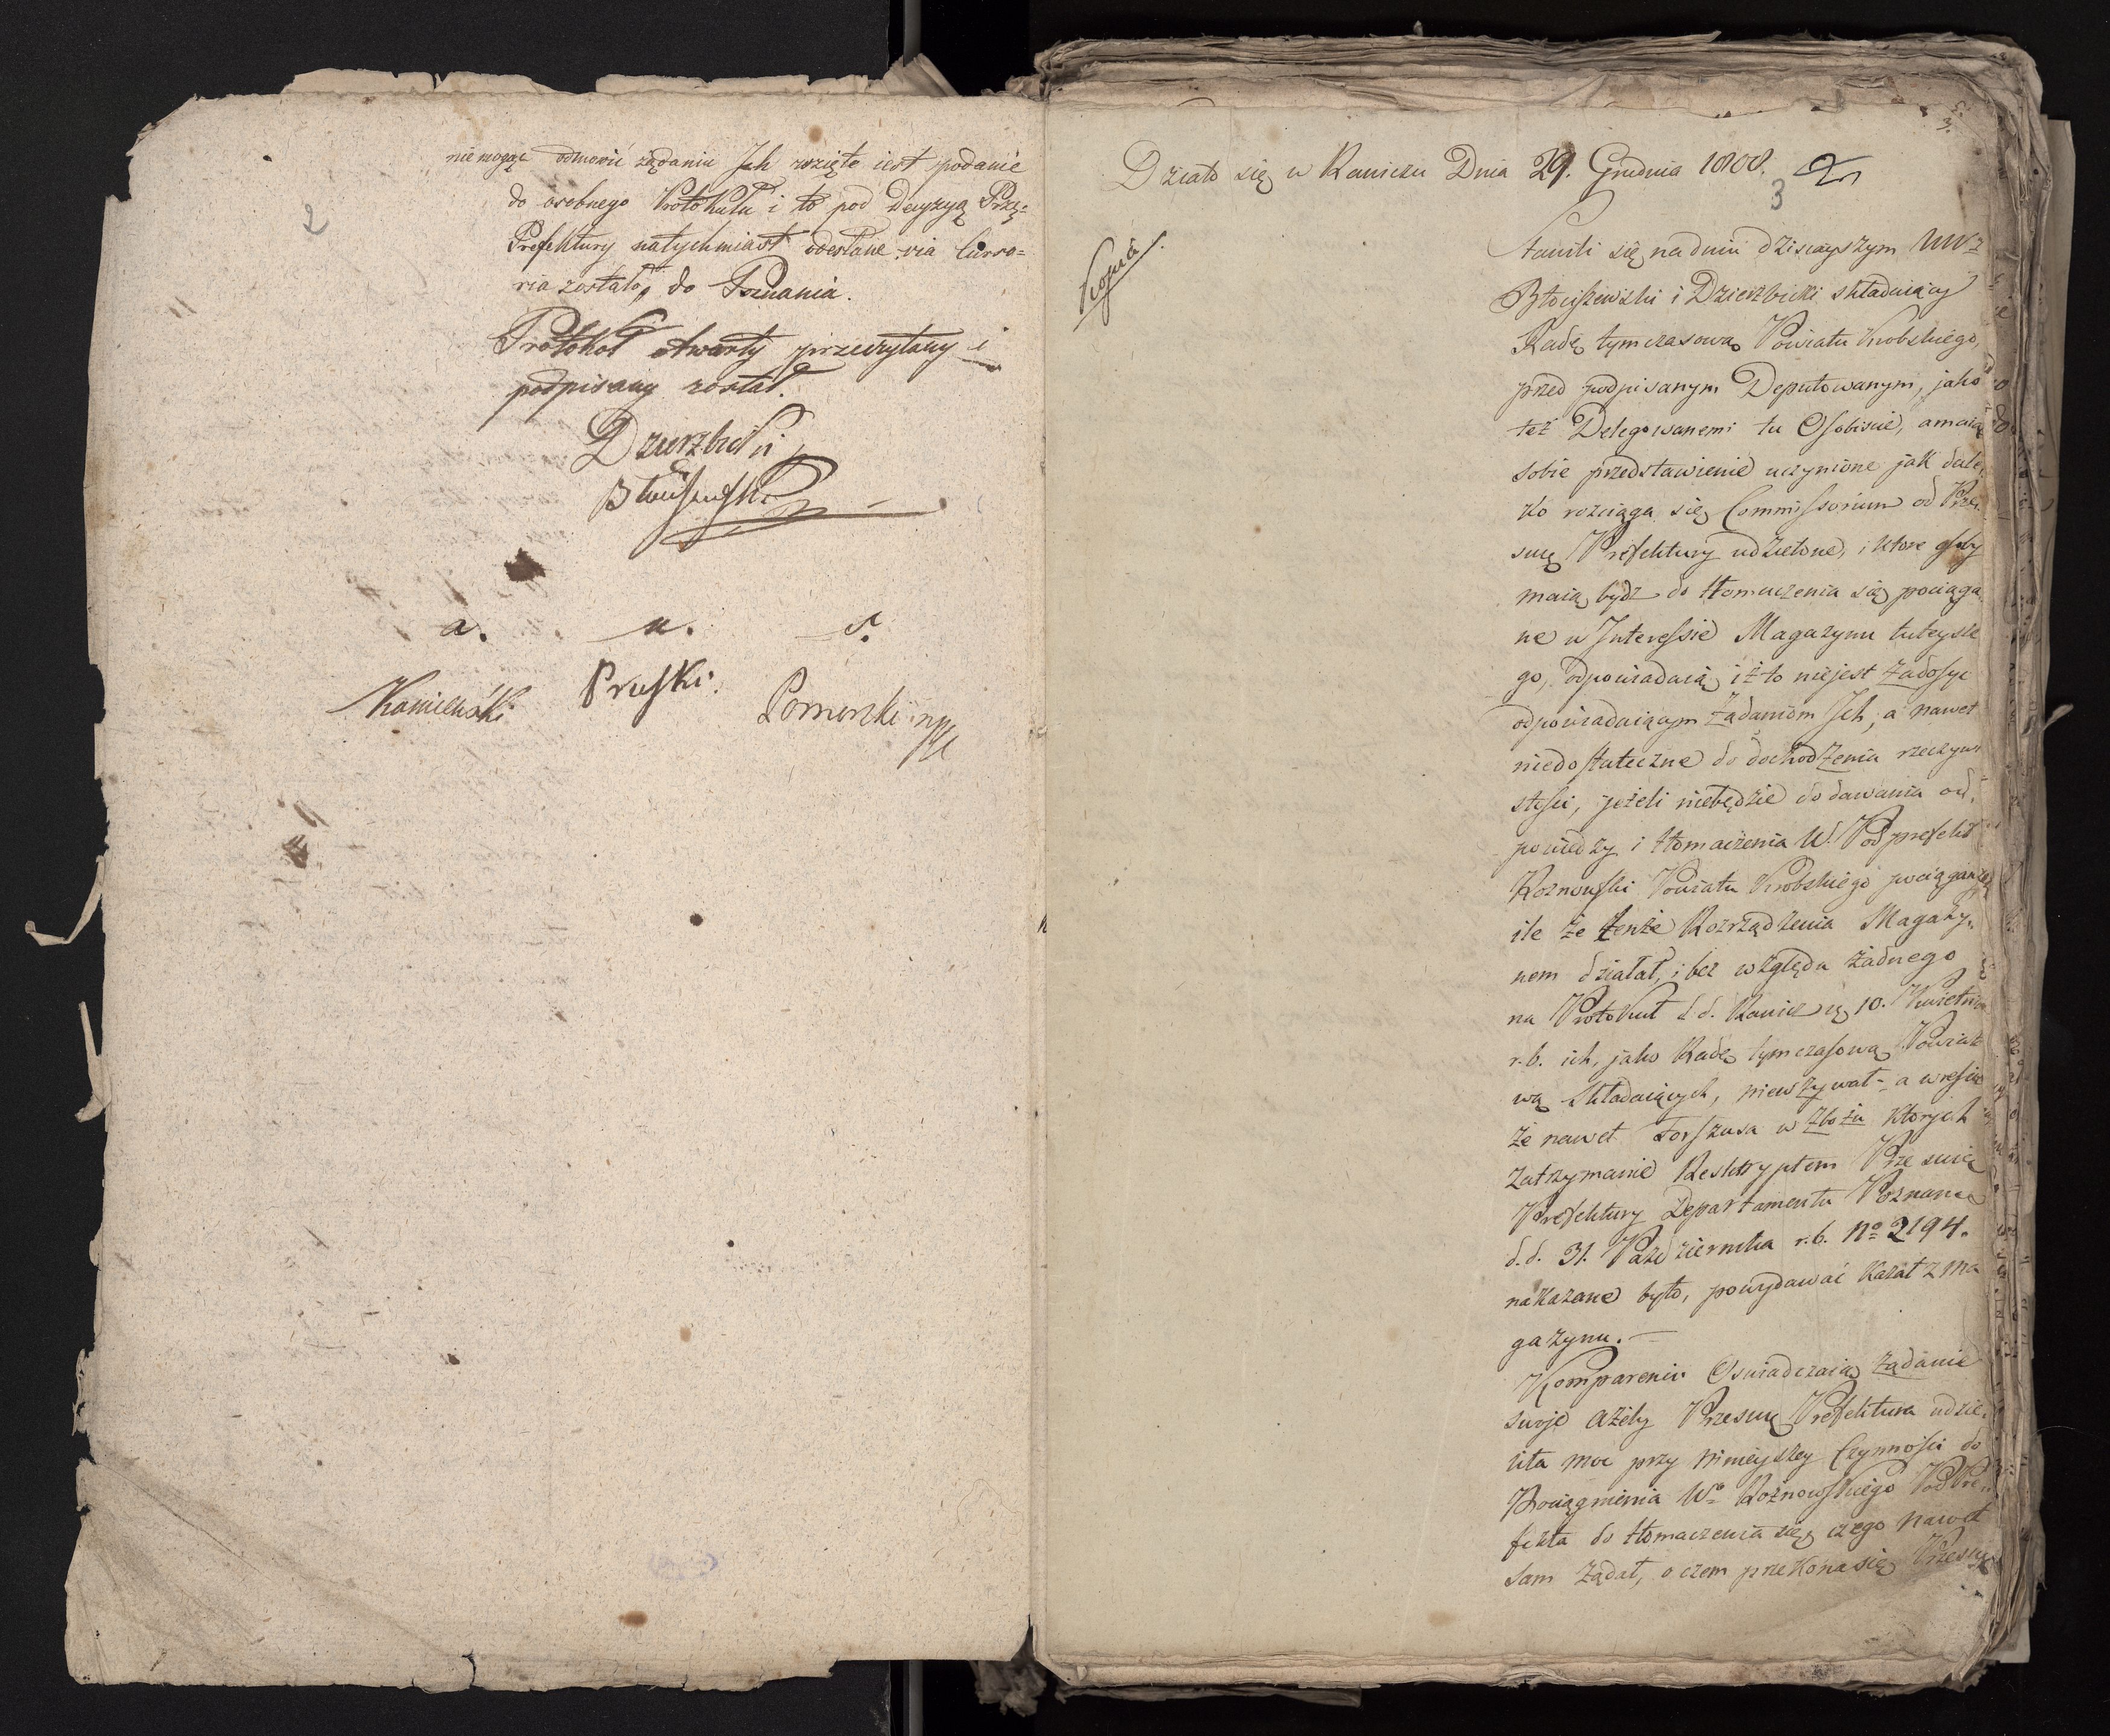 2
nie mogąc odmówić żądaniu Jch wzięte iest podanie
do osobnego Protokułu i to pod Decyzyą Prze=
Prefektury natychmiast odesłane via Curso=
ria zostało, do Poznania.
Protokół otwarty przeczytany i
podpisany został.
Dzierzbicki
a. u. s.
Kamieński Pruski. Pomorski
3.
Działo się w Rawiczu Dnia 29. Grudnia 1808.
3
Kopia
Stawili się na dniu dzisiayszym UUr
Błociszewski i Dzierzbicki składaiący
Radę tymczasową Powiatu Krobskiego,
przed podpisanym Deputowanym, jako
też Delegowanemi tu Osobiscie, a maią
sobie przedstawienie uczynione jak dale=
ko rozciąga się Commissorium od Prze
swię Prefektury udzielone, i które osoby
maią bydz do tłomaczenia się pociąga
ne w Interessie Magazynu tuteysze
go, odpowiadaią iż to niejest zadosyc
odpowiadaiącym żądaniom Ich, a nawet
niedostateczne do dochodzenia rzeczywi
stości, jeżeli niebędzie do dawania od=
powiedzy i tłomaczenia W. Podprefekt
Koznowski Powiatu Krobskiego pociągany
ile że tenże Rozrządzenia Magazy=
nem działał, i bez względu żadnego
na Protokuł d.d. Rawicz 10. Kwietnia
r.b. ich, jako Radę tymczasową Powiato
wą składaiących, niewzywał - a wreście
że nawet Forszusa w zbożu których
zatrzymanie Reskryptem Prze swię
Prefektury Departamentu Poznans
d.d. 31. Października r.b. No 2194.
nakazane było, powydawać kazał z Ma
gazynu. —
Komparenci Oswiadczaią żądanie
swoje ażeby Przeswię Prefektura udzie=
liła moc przy ninieyszey Czynności do
Pociągnienia Wo Koznowskiego PodPre=
fekta do tłomaczenia się, czego nawet
sam żądał, o czem przekona się Przeswię